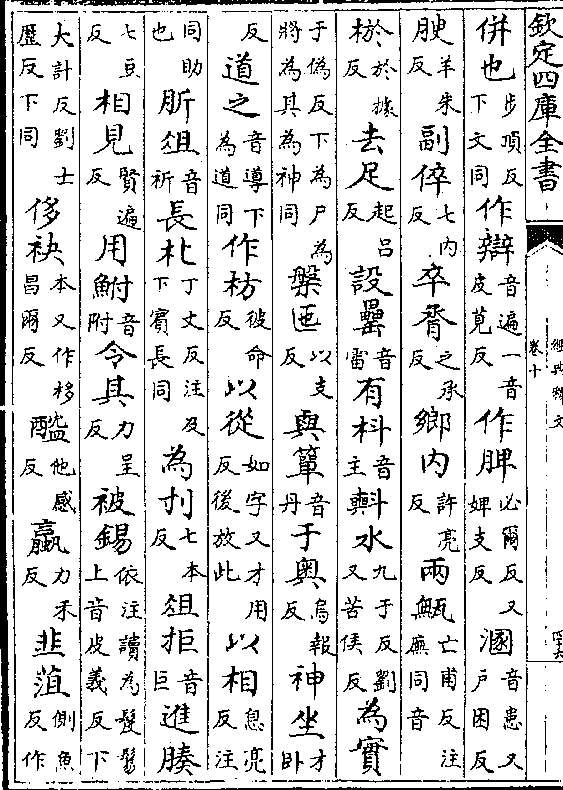 欽定四庫全書
經典釋文
卷十
併也步頂反下文同作辯音遍一音皮莧反作脾必爾反又婢支反溷音患又戶困反
腴羊朱反副倅七內反卒脀之承反鄉內許亮反兩甒亡甫反注廡同音
棜於據反去足起呂反設罍音雷有枓音主㪺水九于反劉又苦侯反為實
于偽反下為尸為將為其為神同槃匜以支反與簞音丹于奧烏報反神坐才臥
反道之音導下為道同作枋彼命反以從如字又才用反後放此以相息亮反注
同助也肵俎音祈長朼丁丈反注及下賓長同為刌七本反俎拒音巨進腠
七豆反相見賢遍反用鮒音附令其力呈反被錫依注讀為髲鬄上音皮義反下
大計反劉士歷反下同侈袂本又作栘昌爾反醓他感反蠃力禾反韭菹側魚反作